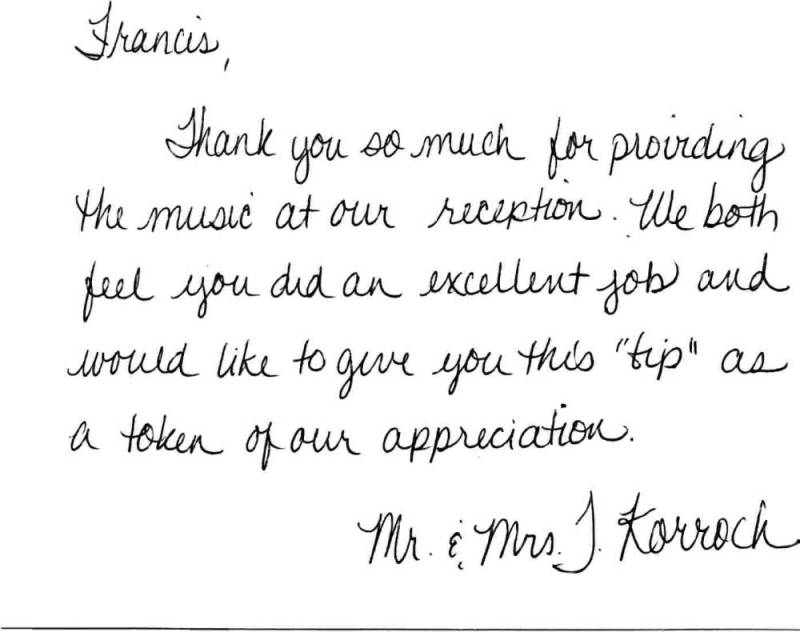 Francis,
Thank you so much for providing
the music at our reception. We both
feel you did an excellent job and
would like to give you this "tip" as
a token of our appreciation.
Mr. & Mrs. J. Korroch